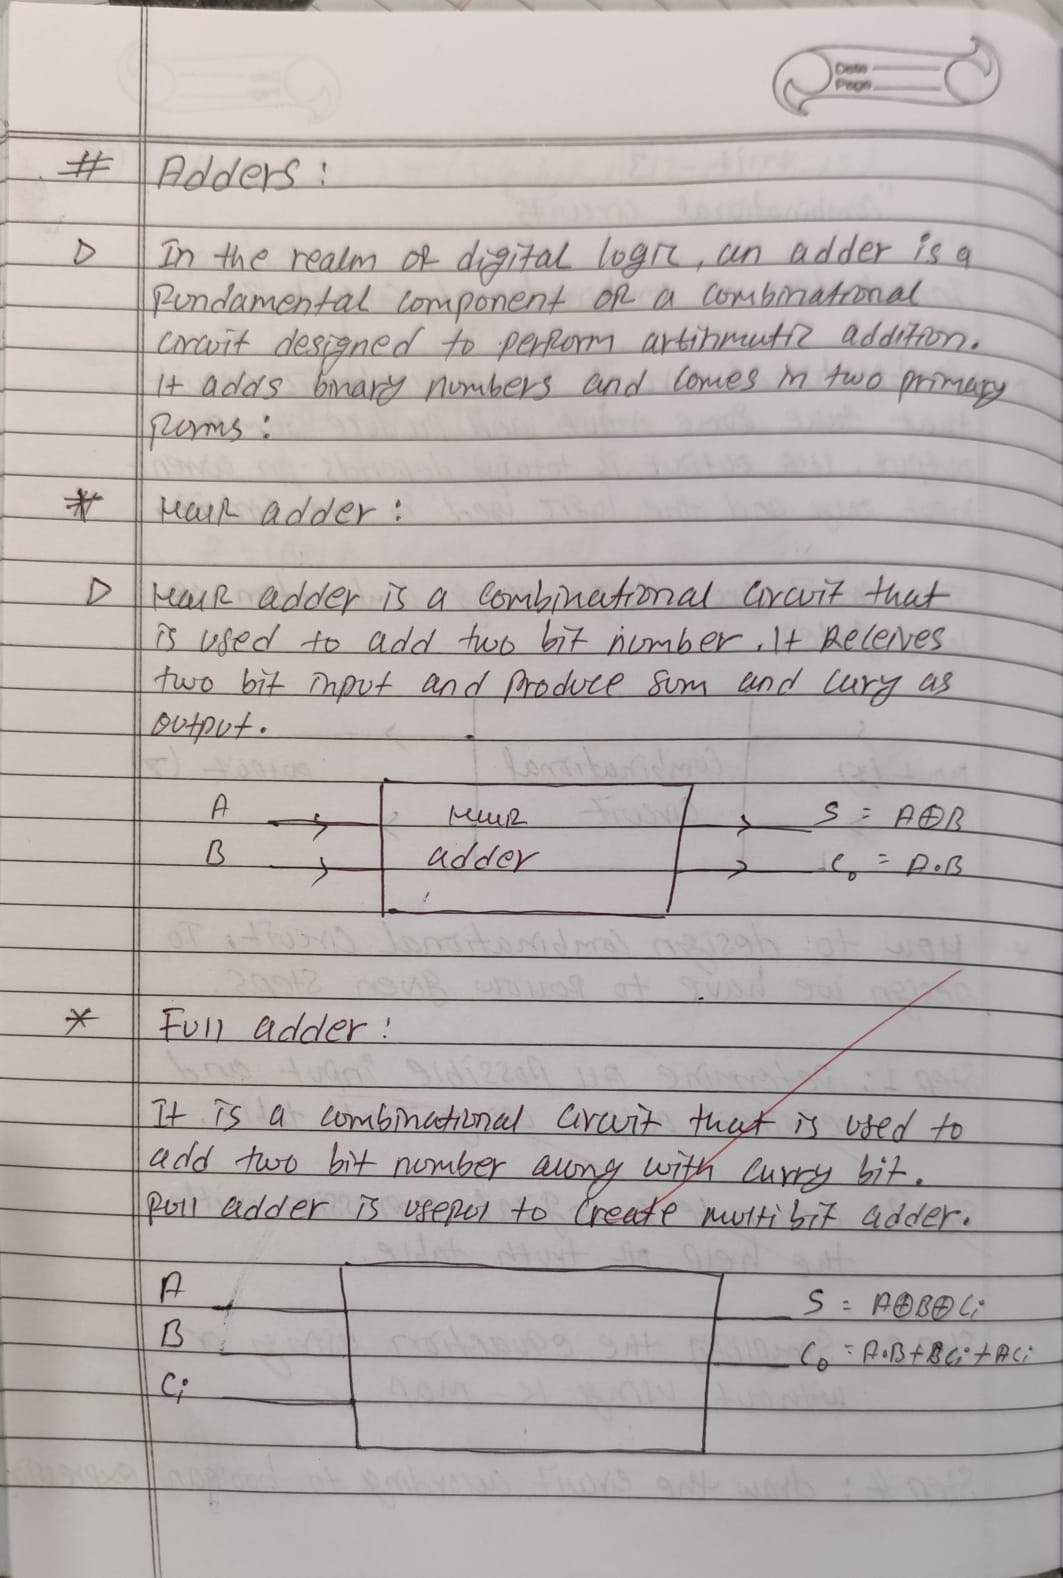 Date
Page
# Adders:
▷ In the realm of digital logic, an adder is a
fundamental component of a combinational
circuit designed to perform artihmutic addition.
It adds binary numbers and comes in two primary
forms:
* Half adder:
▷ Half adder is a combinational circuit that
is used to add two bit number. It Receives
two bit input and produce sum and carry as
output.
A Half S = A⊕B
B adder C₀ = A.B
* Full adder:
It is a combinational circuit that is used to
add two bit number along with curry bit.
Full adder is useful to create multi bit adder.
A S = A⊕B⊕Ci
B C₀ = A.B+BCi+ACi
Ci